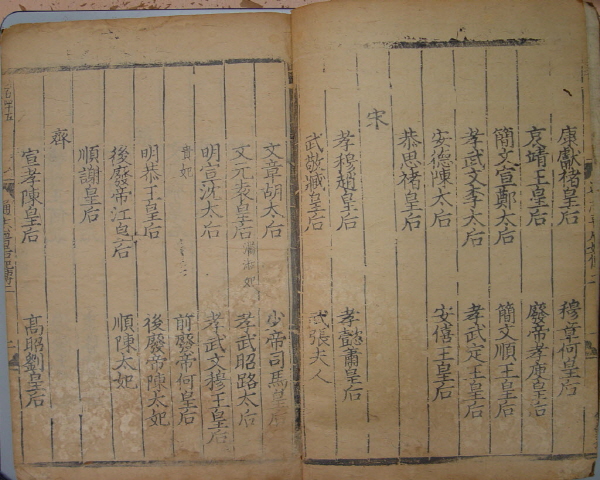 康獻褚皇后 穆章何皇后
哀靖王皇后 廢帝孝庾皇后
簡文宣鄭太后 簡文順王皇后
孝武文李太后 孝武定王皇后
安德陳太后 安僖王皇后
恭思褚皇后
宋
孝穆趙皇后 孝懿蕭皇后
武敬臧皇后 武張夫人
文章胡太后 少帝司馬皇后
文元袁皇后 潘淑妃 孝武昭路太后
明宣沈太后 孝武文穆王皇后
貴妃 前廢帝何皇后
明恭王皇后 後廢帝陳太妃
後廢帝江皇后 順陳太妃
順謝皇后
齊
宣孝陳皇后 高昭劉皇后